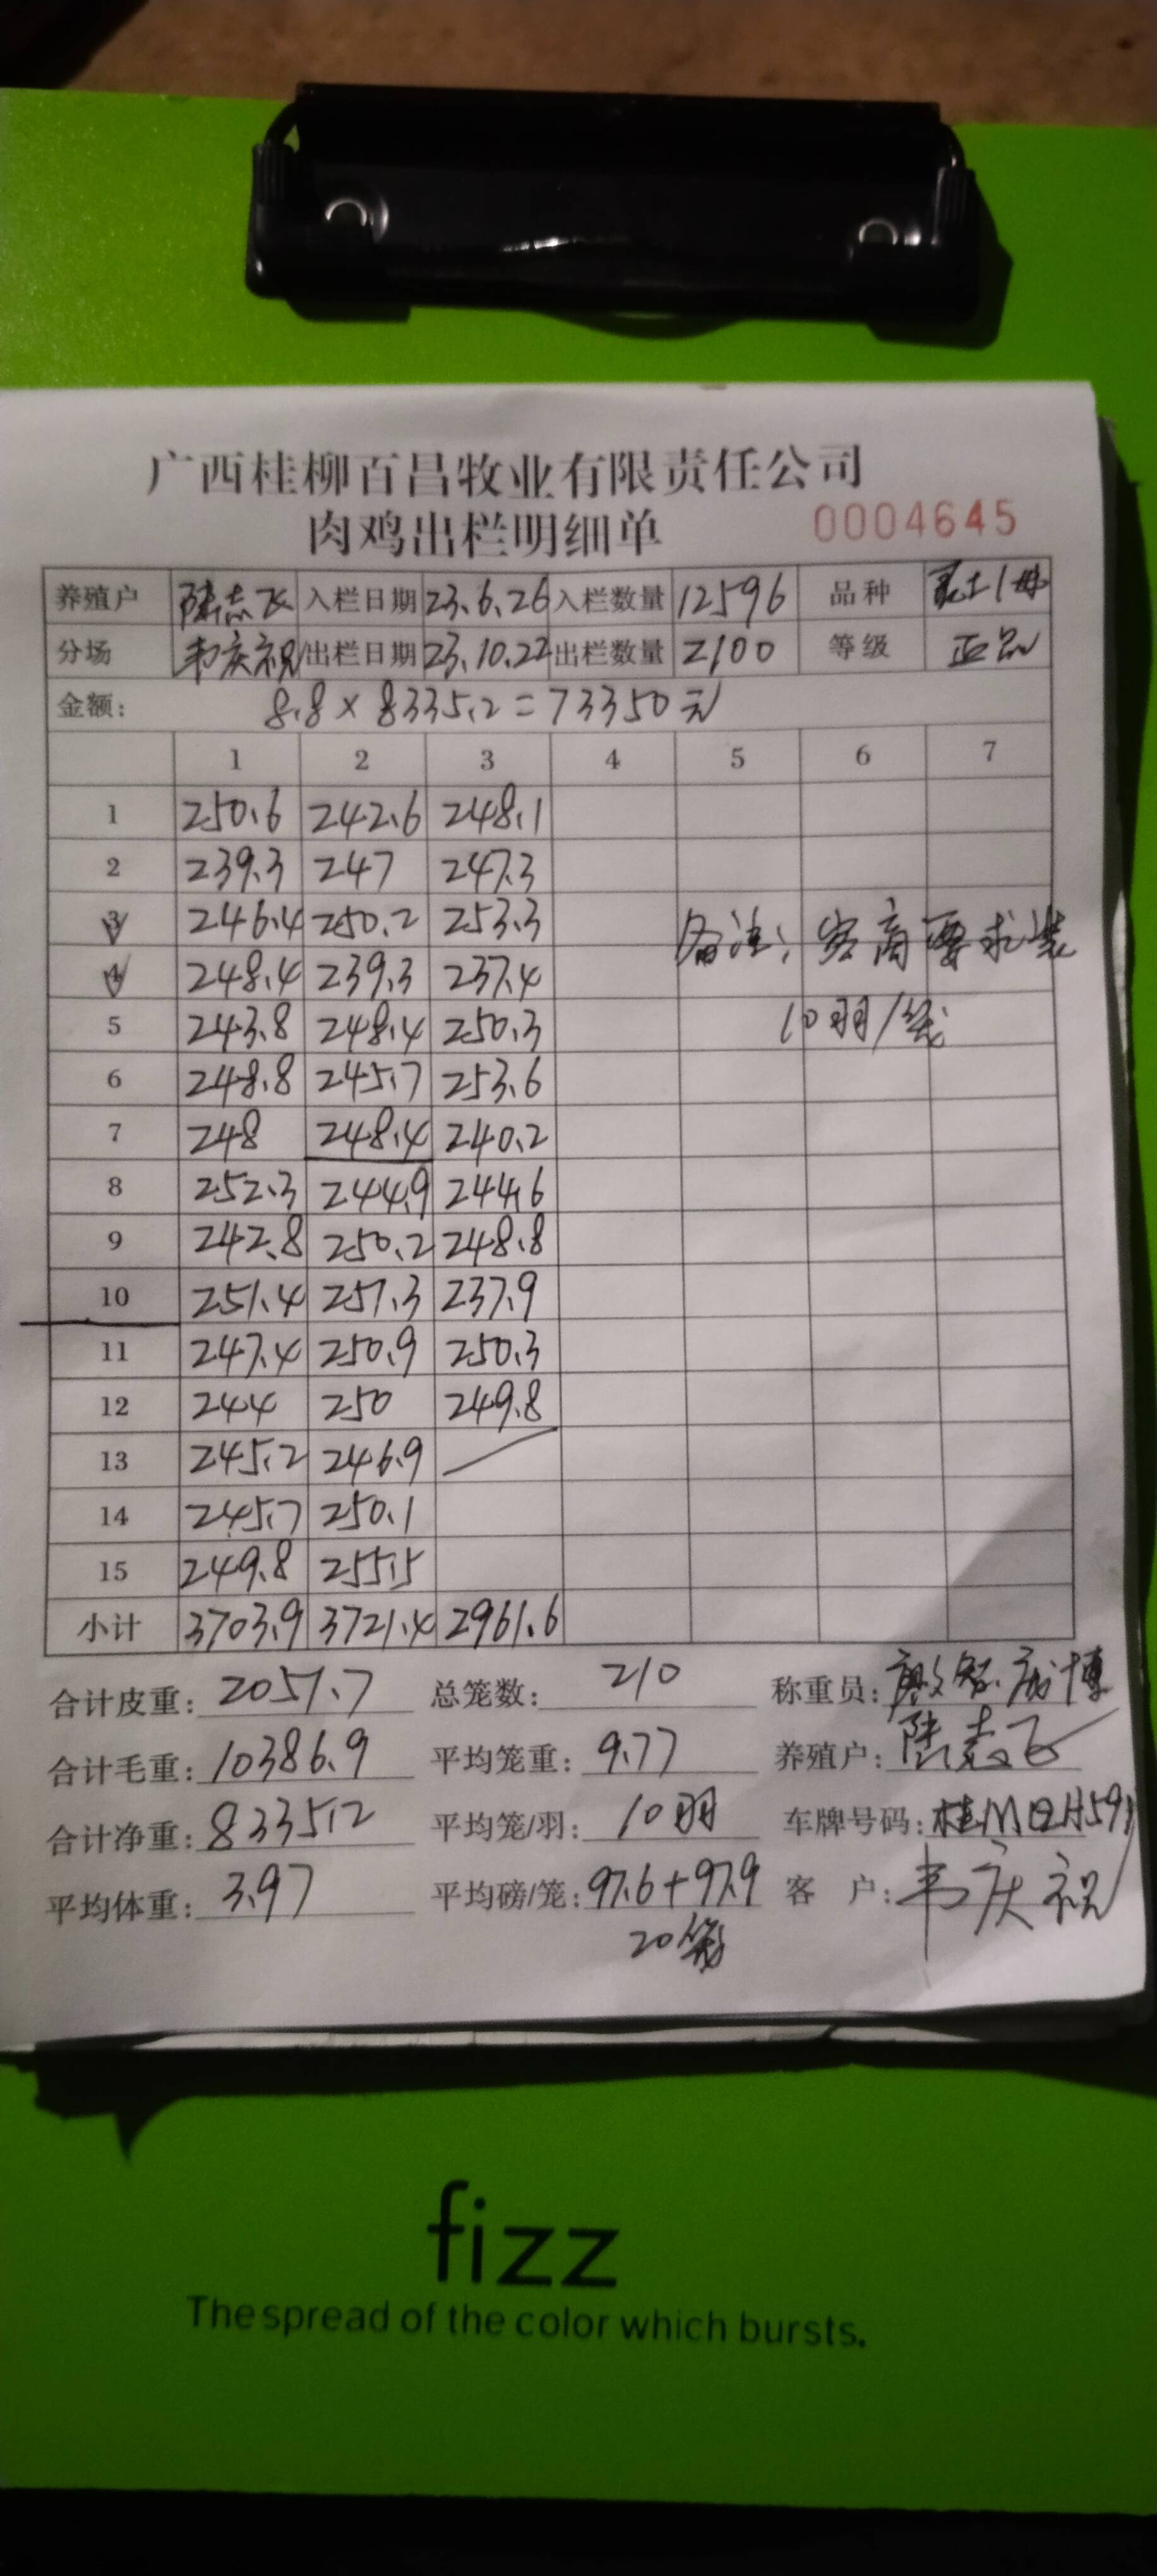 广西桂柳百昌牧业有限责任公司
肉鸡出栏明细单 0004645
养殖户 陆志飞 入栏日期 23.6.26 入栏数量 12596 品种 土1母
分场 韦庆祝 出栏日期 23.10.22 出栏数量 2100 等级 正品
金额: 8.8×8335.2=73350元
1 2 3 4 5 6 7
1 250.6 242.6 248.1
2 239.3 247 247.3
3 246.4 250.2 253.3 备注: 客商要求装
4 248.4 239.3 237.4
5 243.8 248.4 250.3 10羽/笼
6 248.8 245.7 253.6
7 248 248.4 240.2
8 252.3 244.9 244.6
9 242.8 250.2 248.8
10 251.4 251.3 237.9
11 247.4 250.9 250.3
12 244 250 249.8
13 245.2 246.9
14 245.7 250.1
15 249.8 255.5
小计 3703.9 3721.4 2961.6
合计皮重: 2051.7 总笼数: 210 称重员:
合计毛重: 10386.9 平均笼重: 9.77 养殖户: 陆志飞
合计净重: 8335.2 平均笼/羽: 10羽 车牌号码:
平均体重: 3.97 平均磅/笼: 97.6+97.9 客 户: 韦庆祝
20笼
fizz
The spread of the color which bursts.